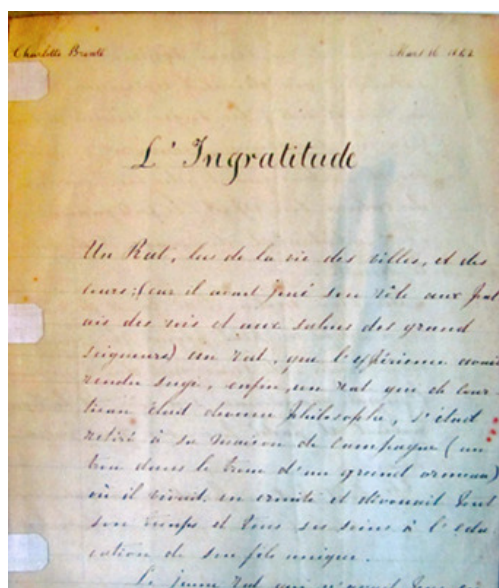 Charlotte Brontë Mars 16 1842
L'Ingratitude
Un Rat, las de la vie des villes, et des
cours; (car il avait joué son rôle aux Pal
ais des rois et aux salons des grand
seigneurs) un rat, que l'expérience avait
rendu sage, enfin, un rat que de cour
tisan était devenu philosophe, s'était
retiré à sa maison de campagne (un
trou dans le tronc d'un grand ormeau)
où il vivait en ermite et dévouait tout
son temps et tous ses soins à l'edu
cation de son fils unique.
Le jeune rat, qui n'avait